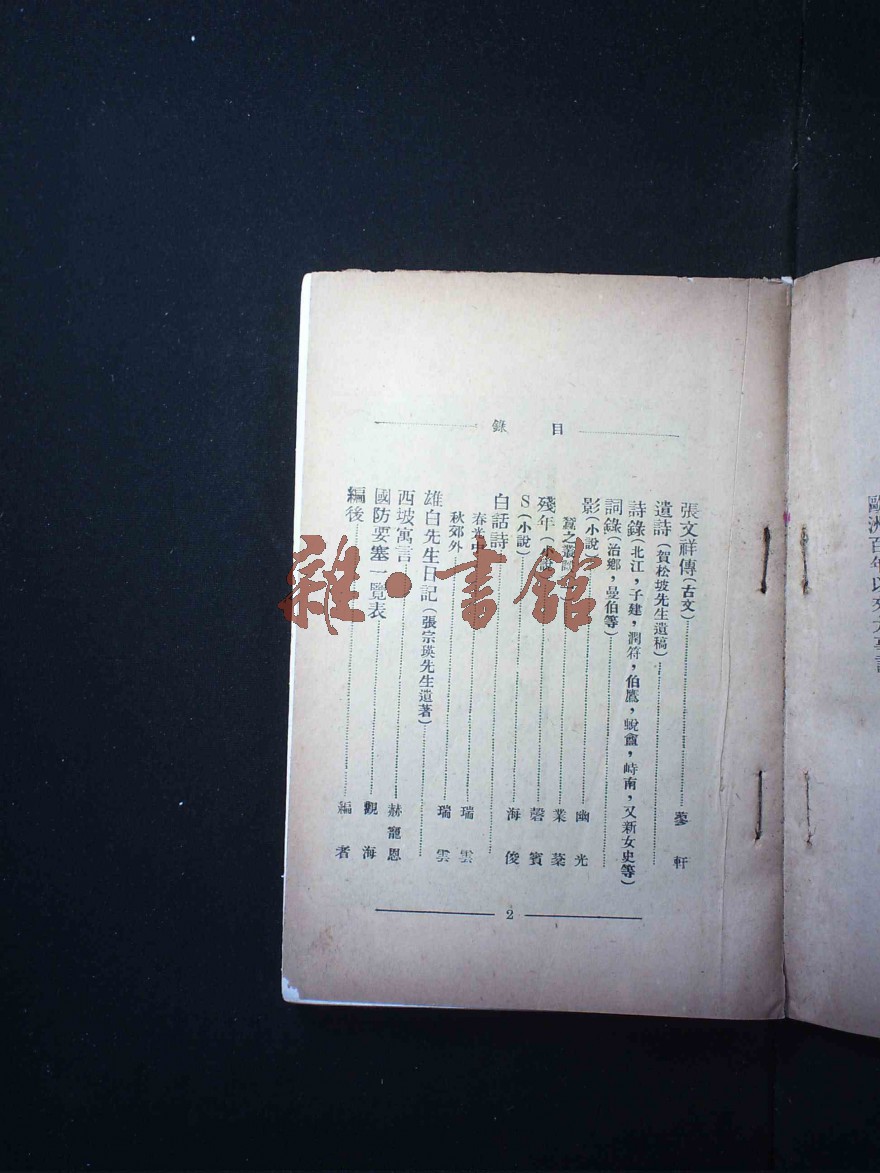 目錄
張文祥傳(古文)⋯⋯蓼軒
遺詩(賀松坡先生遺稿)⋯⋯
詩錄(北江,子建,潤符,伯鷹,蛻盦,峙南,又新女史等)
詞錄(治鄉,曼伯等)⋯⋯
影(小說)⋯⋯幽光
蠶之叢⋯⋯業棻
殘年(小說⋯⋯磬賓
S(小說)⋯⋯海俊
白話詩⋯⋯
春光⋯⋯瑞雲
秋郊外⋯⋯瑞雲
雄白先生日記(張宗瑛先生遺著)⋯⋯
西坡寓言⋯⋯赫寵恩
國防要塞一覽表⋯⋯觀海
編後⋯⋯編者
2
歐洲百年以來大事記
雜·書館